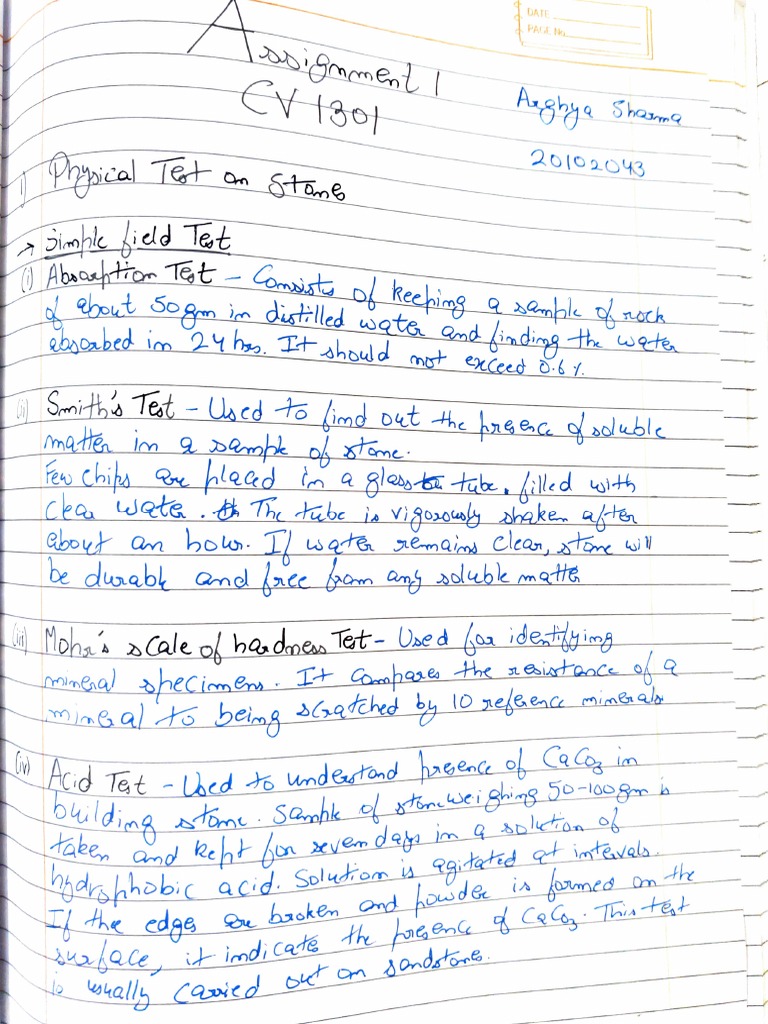 DATE
PAGE No.
Assignment 1
CV 1301
Arghya Sharma
20102043
1) Physical Test on Stones
→ Simple field Test
(i) Absorption Test - Consists of keeping a sample of rock
of about 50gm in distilled water and finding the water
absorbed in 24 hrs. It should not exceed 0.6%.
(ii) Smith's Test - Used to find out the presence of soluble
matter in a sample of stone.
Few chips are placed in a glass tube. filled with
clear water. The tube is vigorously shaken after
about an hour. If water remains clear, stone will
be durable and free from any soluble matter
(iii) Mohr's scale of hardness Test - Used for identifying
mineral specimens. It compares the resistance of a
mineral to being scratched by 10 reference minerals
(iv) Acid Test - Used to understand presence of CaCO3 in
building stone. Sample of stone weighing 50-100gm is
taken and kept for seven days in a solution of
hydrophobic acid. Solution is agitated at intervals.
If the edges are broken and powder is formed on the
surface, it indicate the presence of CaCO3. This test
is usually carried out on sandstones.